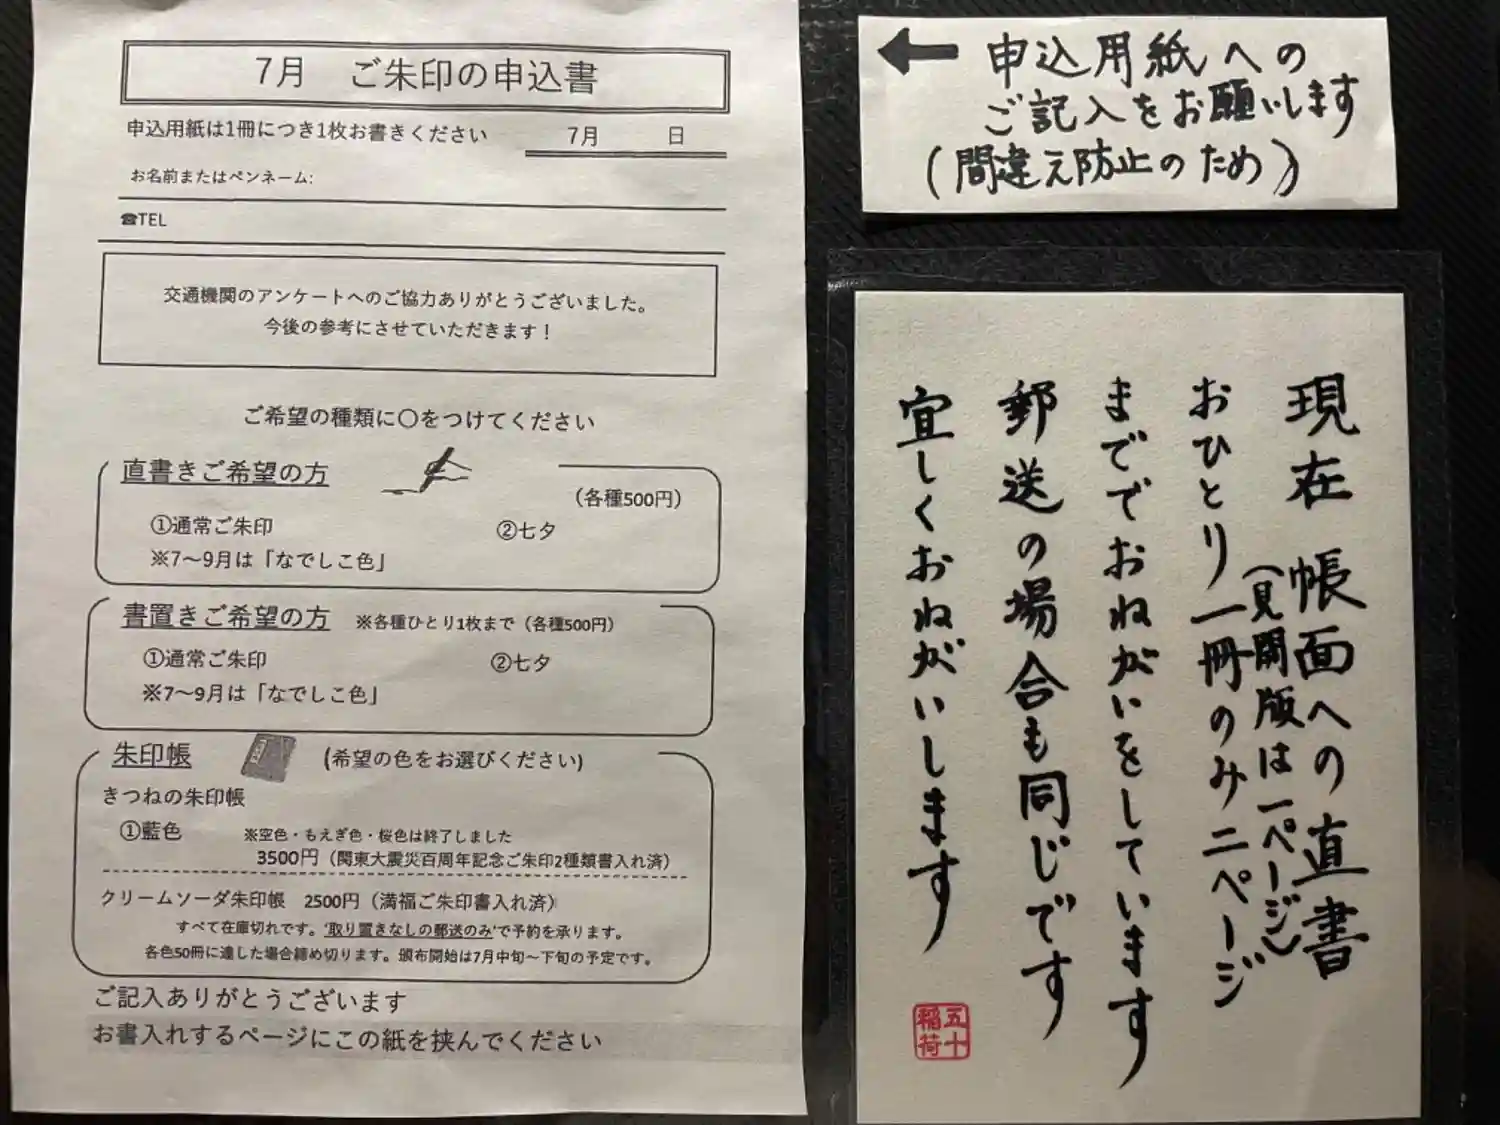 7月　ご朱印の申込書
申込用紙は1冊につき1枚お書きください
7月　　　日
お名前またはペンネーム:
☎TEL
交通機関のアンケートへのご協力ありがとうございました。
今後の参考にさせていただきます！
ご希望の種類に〇をつけてください
直書きご希望の方
（各種500円）
①通常ご朱印　②七夕
※7～9月は「なでしこ色」
書置きご希望の方　※各種ひとり1枚まで（各種500円）
①通常ご朱印　②七夕
※7～9月は「なでしこ色」
朱印帳　(希望の色をお選びください)
きつねの朱印帳
①藍色　※空色・もえぎ色・桜色は終了しました
3500円（関東大震災百周年記念ご朱印2種類書入れ済）
クリームソーダ朱印帳　2500円（満福ご朱印書入れ済）
すべて在庫切れです。'取り置きなしの郵送のみ'で予約を承ります。
各色50冊に達した場合締め切ります。頒布開始は7月中旬～下旬の予定です。
ご記入ありがとうございます
お書入れするページにこの紙を挟んでください
←申込用紙への
ご記入をお願いします
(間違え防止のため)
現在　帳面への直書
(見開版は一ページ)
おひとり一冊のみ二ページ
まででおねがいをしています
郵送の場合も同じです
宜しくおねがいします
五十
稲荷